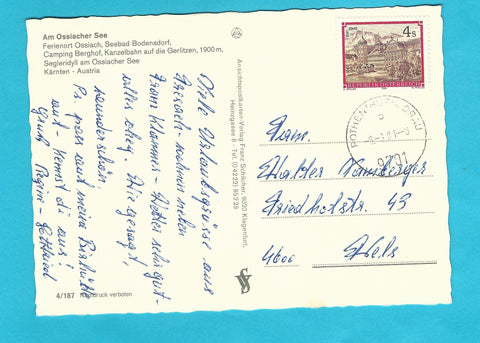 Am Ossiacher See
Ferienort Ossiach, Seebad Bodensdorf,
Camping Berghof, Kanzelbahn auf die Gerlitzen, 1900 m,
Segleridyll am Ossiacher See
Kärnten - Austria
Viele Urlaubsgrüsse aus
wohnen neben
Franz Klammer - Wetter sehr gut -
alles okey. Wie gesagt,
wunderschön.
Ps. grass
aus - kennst di aus!
Gruß Regina - Gottfried
4/187 Nachdruck verboten
Ansichtspostkarten-Verlag Franz Schilcher, 9020 Klagenfurt,
Heinzgasse 8 - Tel. (0 42 22) 85 2 28
SV
4 S
REPUBLIK ÖSTERREICH
ROTHENTHURN, DRAU
9701
Fam.
Walter
Friedhofstr. 43
4600 Wels